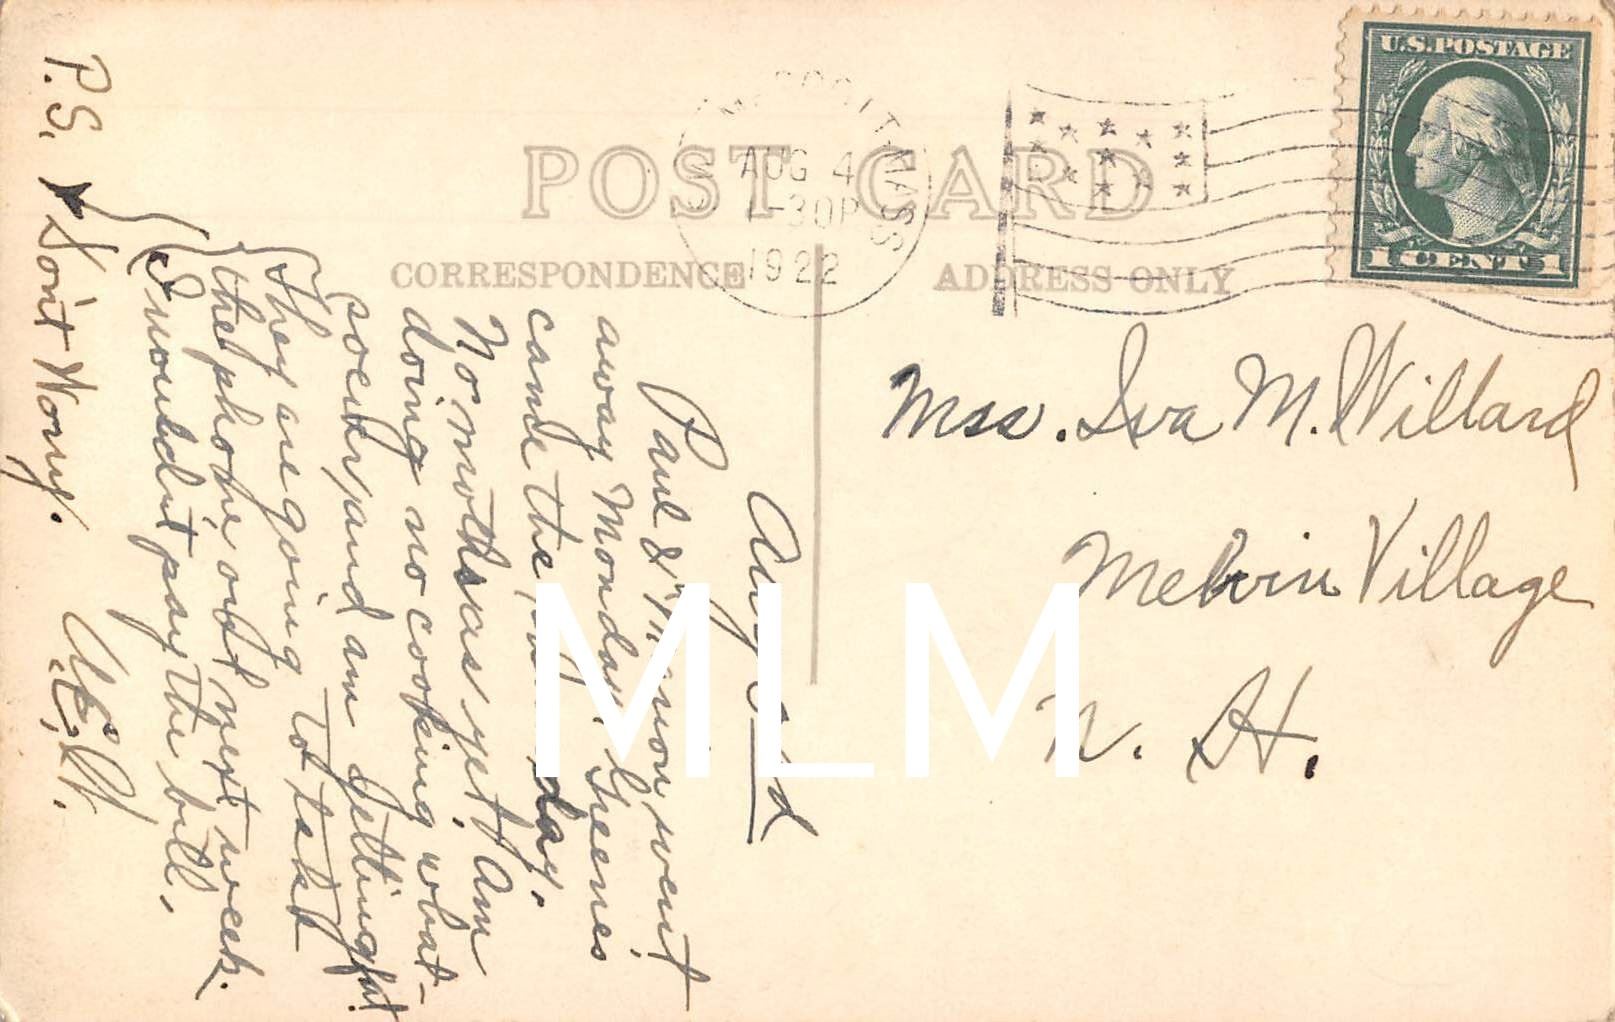 U.S. POSTAGE
1 CENT 1
POST CARD
CORRESPONDENCE
ADDRESS ONLY
MASS
AUG 4
-30P
1922
Mrs. Iva M. Willard
Melvin Village
N. H.
Aug 2nd
Paul & Marion went
away Monday. Greenes
came the day.
No mothsas yet. Am
doing no cooking what-
soever, and am getting fat!
They are going to take
the phone out next week.
I wouldn't pay the bill.
P.S. Don't Worry. W.E.W.
MLM